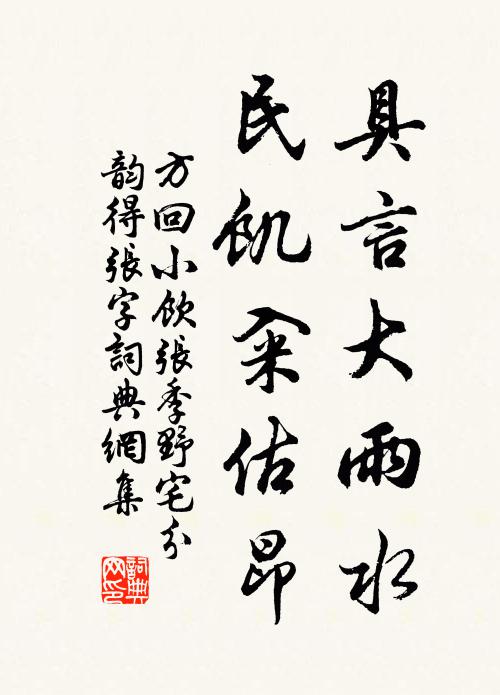 具言大雨水
民飢籴估昂
方回小飲張季野宅分
韵得張字詞典網集
詞典网印